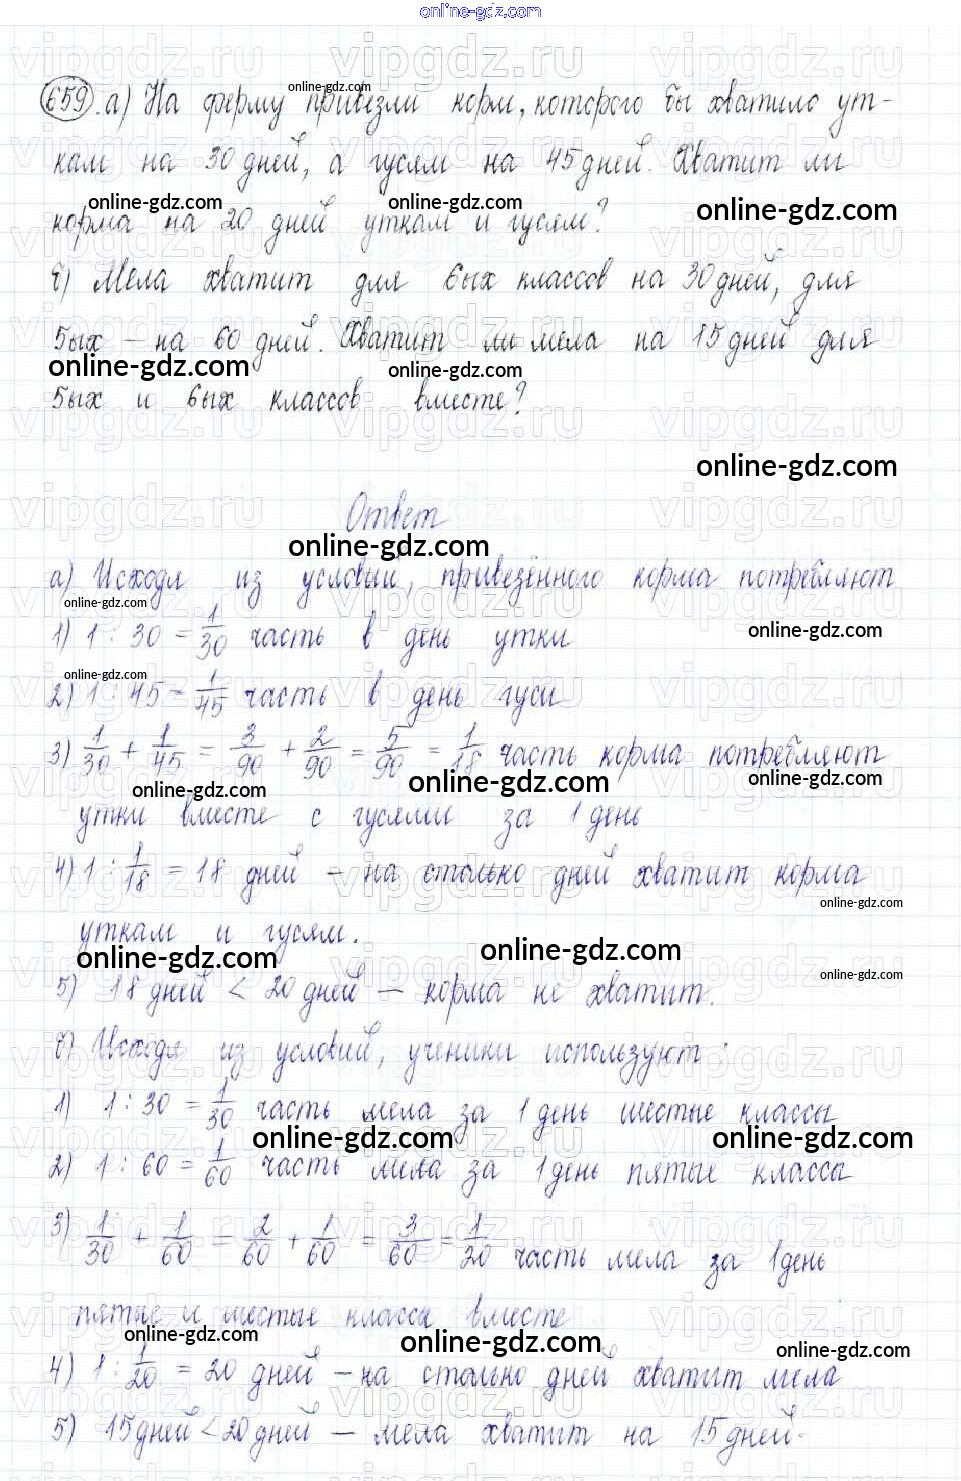 online-gdz.com
659. а) На ферму привезли корм, которого бы хватило ут-
кам на 30 дней, а гусям на 45 дней. Хватит ли
корма на 20 дней уткам и гусям?
б) Мела хватит для 6ых классов на 30 дней, для
5ых – на 60 дней. Хватит ли мела на 15 дней для
5ых и 6ых классов вместе?
Ответ
а) Исходя из условий, привезённого корма потребляют
1) 1 : 30 = 1/30 часть в день утки
2) 1 : 45 = 1/45 часть в день гуси
3) 1/30 + 1/45 = 3/90 + 2/90 = 5/90 = 1/18 часть корма потребляют
утки вместе с гусями за 1 день
4) 1 : 1/18 = 18 дней – на столько дней хватит корма
уткам и гусям.
5) 18 дней < 20 дней – корма не хватит.
б) Исходя из условий, ученики используют :
1) 1 : 30 = 1/30 часть мела за 1 день шестые классы
2) 1 : 60 = 1/60 часть мела за 1 день пятые классы
3) 1/30 + 1/60 = 2/60 + 1/60 = 3/60 = 1/20 часть мела за 1 день
пятые и шестые классы вместе
4) 1 : 1/20 = 20 дней – на столько дней хватит мела
5) 15 дней < 20 дней – мела хватит на 15 дней.